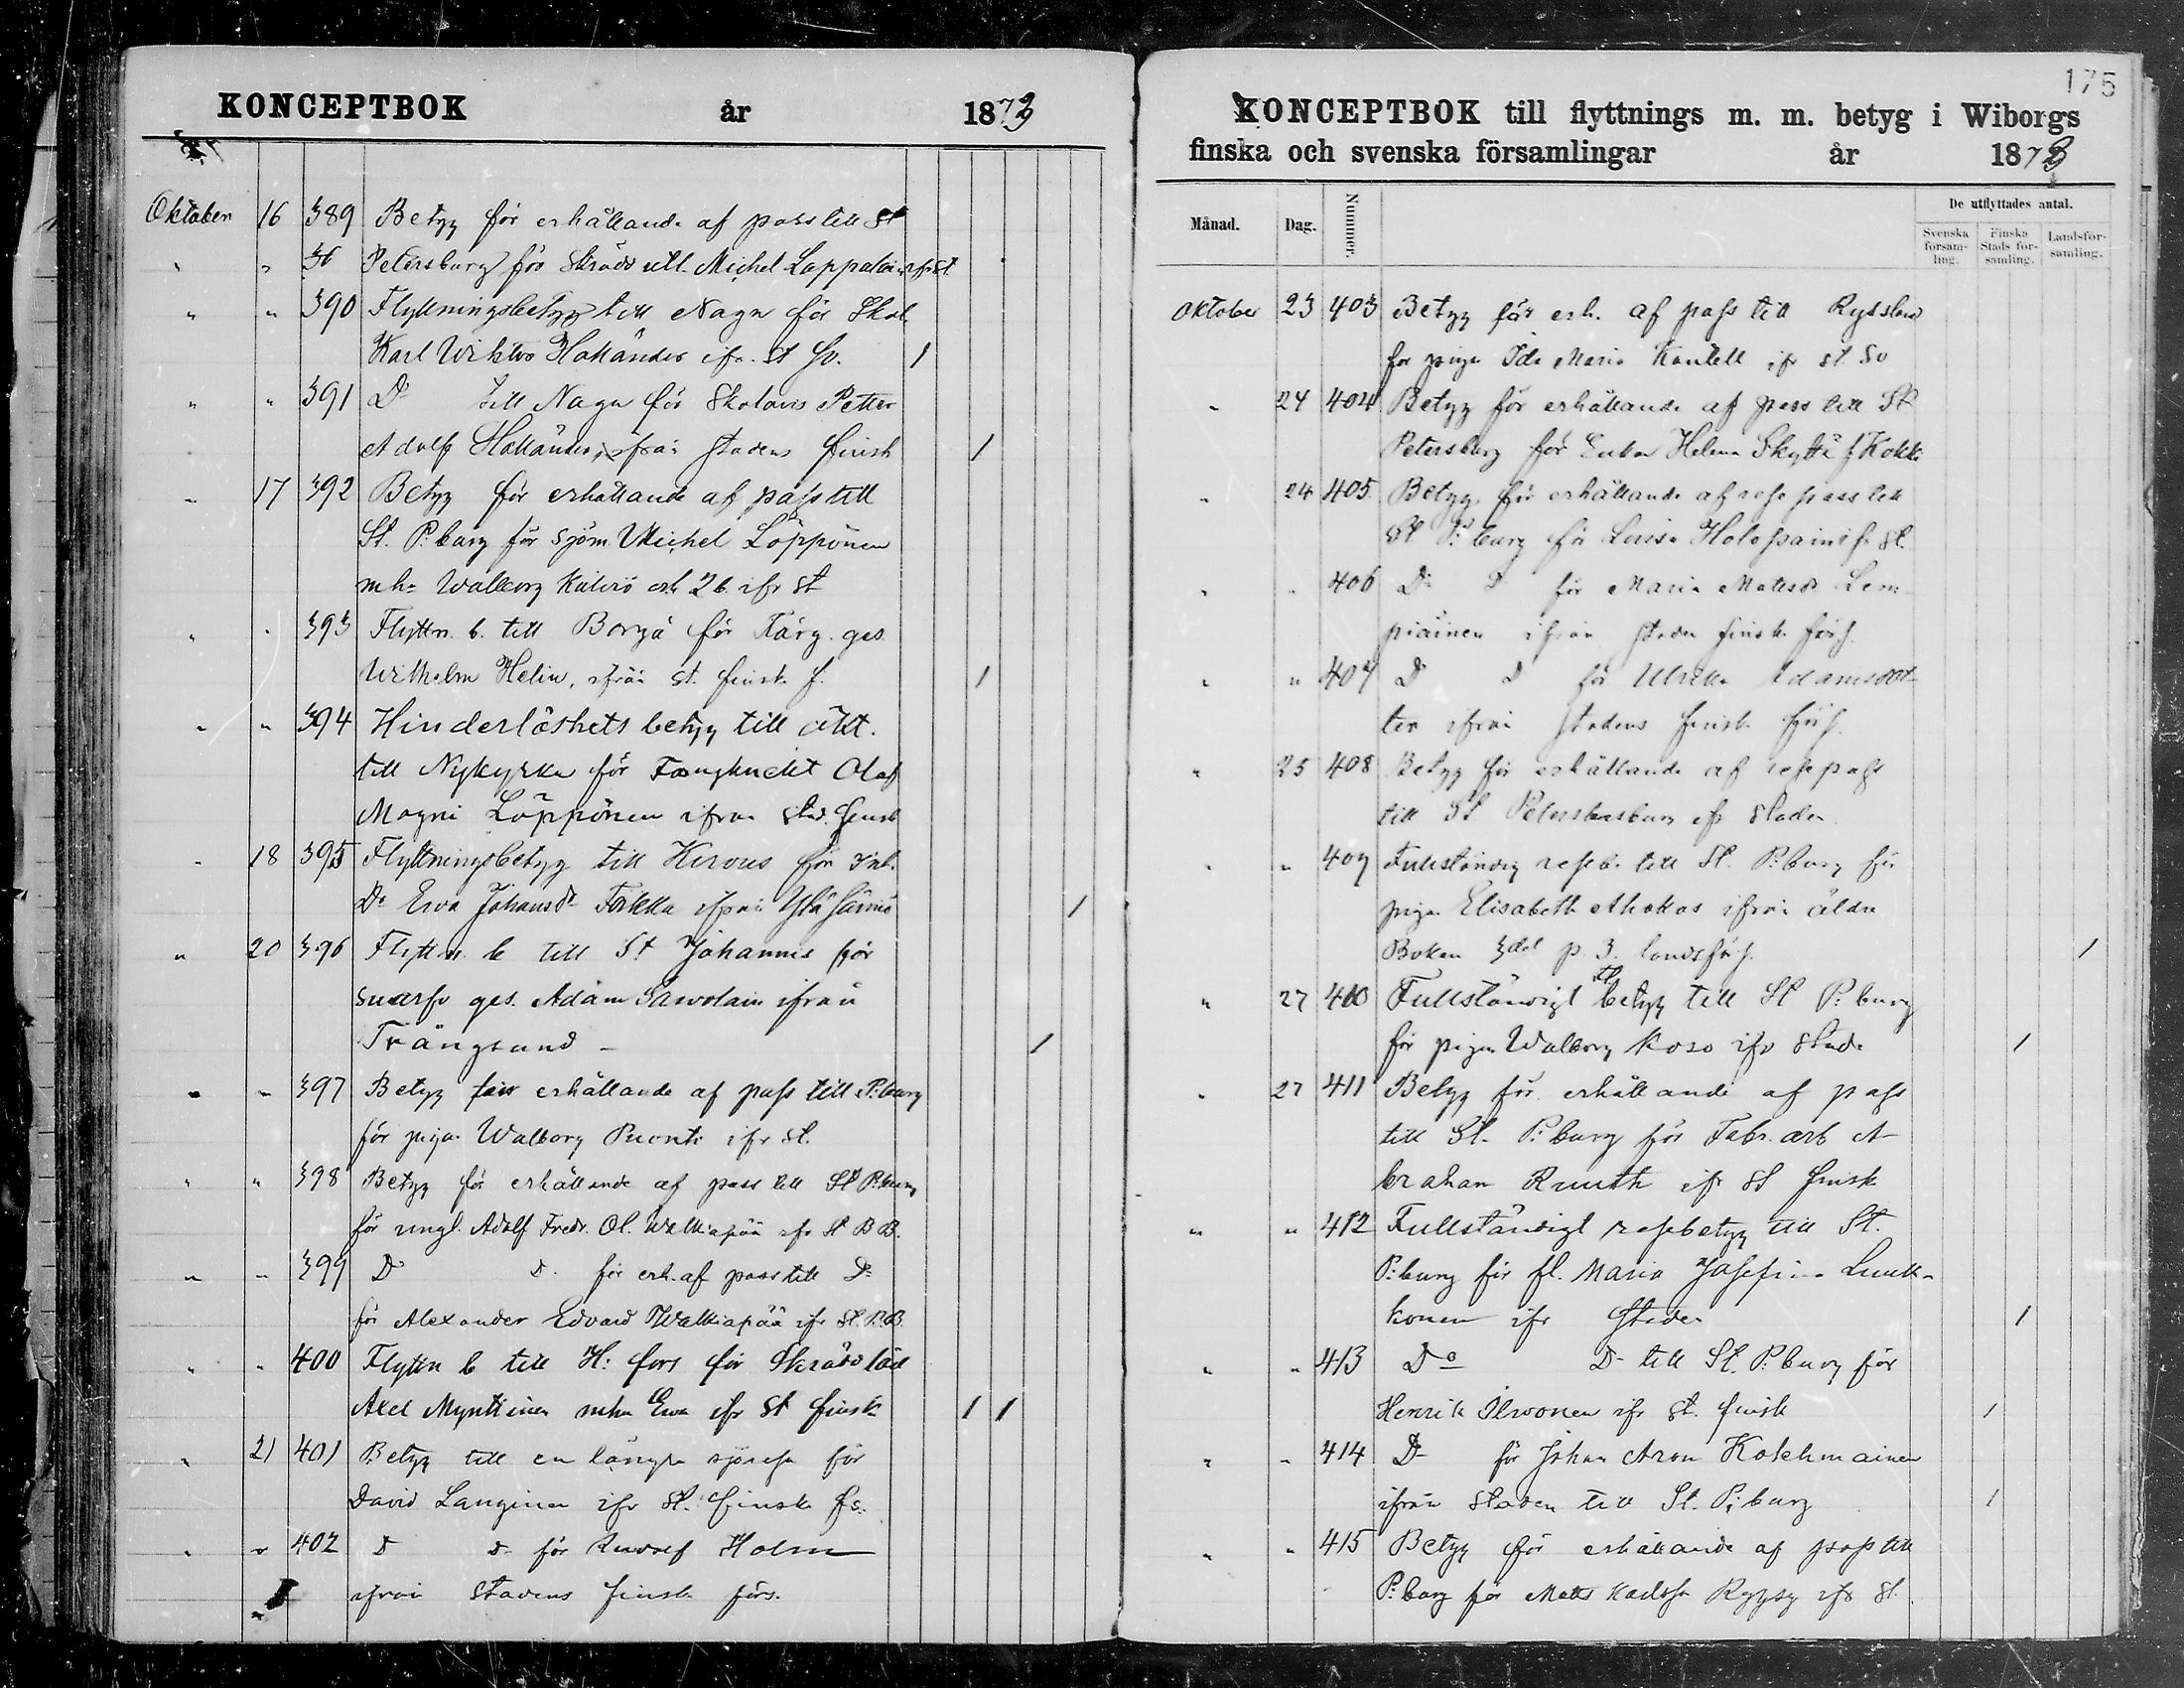 KONCEPTBOK år 1873
Oktober 16 389 Betyg för erhållande af pass till St
" " 36 Petersburg för Skrädd Michel Lappalain ifr St.
" " 390 Flyttningsbetyg till Nagu för Skol.
Karl Wiktor Holländer ifr. St Sv. 1
" " 391 Do till Nagu för Skolavis Petter
Adolf Holländer, ifrån stadens finsk 1
" 17 392 Betyg för erhållande af pass till
St. P:burg för Sjöm Michel Löppönen
mh. Walborg och 2 b. ifr St
" " 393 Flyttn. b. till Borgå för Färg. ges
Wilhelm Helin, ifrån St. finsk f. 1
" " 394 Hinderlöshets betyg till äkt.
till Nykyrka för Fångknekt Olof
Magni Löppönen ifrån Stad. finsk
" 18 395 Flyttningsbetyg till Kivous för Inh.
Dr Ewa Johansdr Torkka ifrån 1
" 20 396 Flyttn. b till St Johannis för
Svarfv ges. Adam Sawolain ifrån
Trångsund - 1
" " 397 Betyg för erhållande af pass till P:burg
för pigan Walborg Puonti ifr St.
" " 398 Betyg för erhållande af pass till St P:burg
för yngl. Adolf Fredr. Ol. Walkiapää ifr St B B.
" " 399 Do D. för erh. af pass till Do
för Alexander Edvard Walkiapää ifr St. B.B.
" " 400 Flyttn b till H:fors för Skrädd
Axel Mynttinen mhu Ewa ifr St finsk 1 1
" 21 401 Betyg till en längre sjöresa för
David Langinen ifr St. finsk fs.
" " 402 D D. för Rudolf Holm
ifrån Stadens finsk förs.
175
KONCEPTBOK till flyttnings m. m. betyg i Wiborgs
finska och svenska församlingar år 1873
Månad. Dag. Nummer. De utflyttades antal.
Svenska församling. Finska Stads församling. Landsförsamling.
Oktober 23 403 Betyg för erh. af pass till Ryssland
för pigan Ida Maria Kantell ifr St. Sv
" 24 404 Betyg för erhållande af pass till St
Petersburg för Enkan Helena Skyttä f Kokki
" 24 405 Betyg för erhållande af rese pass till
St P:burg för Lovisa Holopain ifr St.
" " 406 Do D för Maria Mattsdr Lem-
piäinen ifrån staden finsk förs.
" " 407 D D för Ulrika Adamsdot-
ter ifrån stadens finsk förs.
" 25 408 Betyg för erhållande af resepass
till St Petersburg ifr Staden
" " 409 Fullständig reseb. till St. P:burg för
pigan Elisabeth Ahokas ifrån äldre
Boken 3 del p. 3. landsförs. 1
" 27 410 Fullständigt betyg till St P:burg
för pigan Walborg Koso ifr Stade 1
" 27 411 Betyg för erhållande af pass
till St. P:burg för Fabr. arb A-
braham Ruuth ifr St finsk
" " 412 Fullständigt resebetyg till St.
P:burg för fl. Maria Josefina Luuk-
konen ifr Staden 1
" " 413 Do D- till St. P:burg för
Henrik Ilwonen ifr St. finsk 1
" " 414 D- för Johan Aron Kolehmainen
ifrån Staden till St. P:burg 1
" " 415 Betyg för erhållande af pass till
P:burg för Matts Karlss Rypsy ifr St.